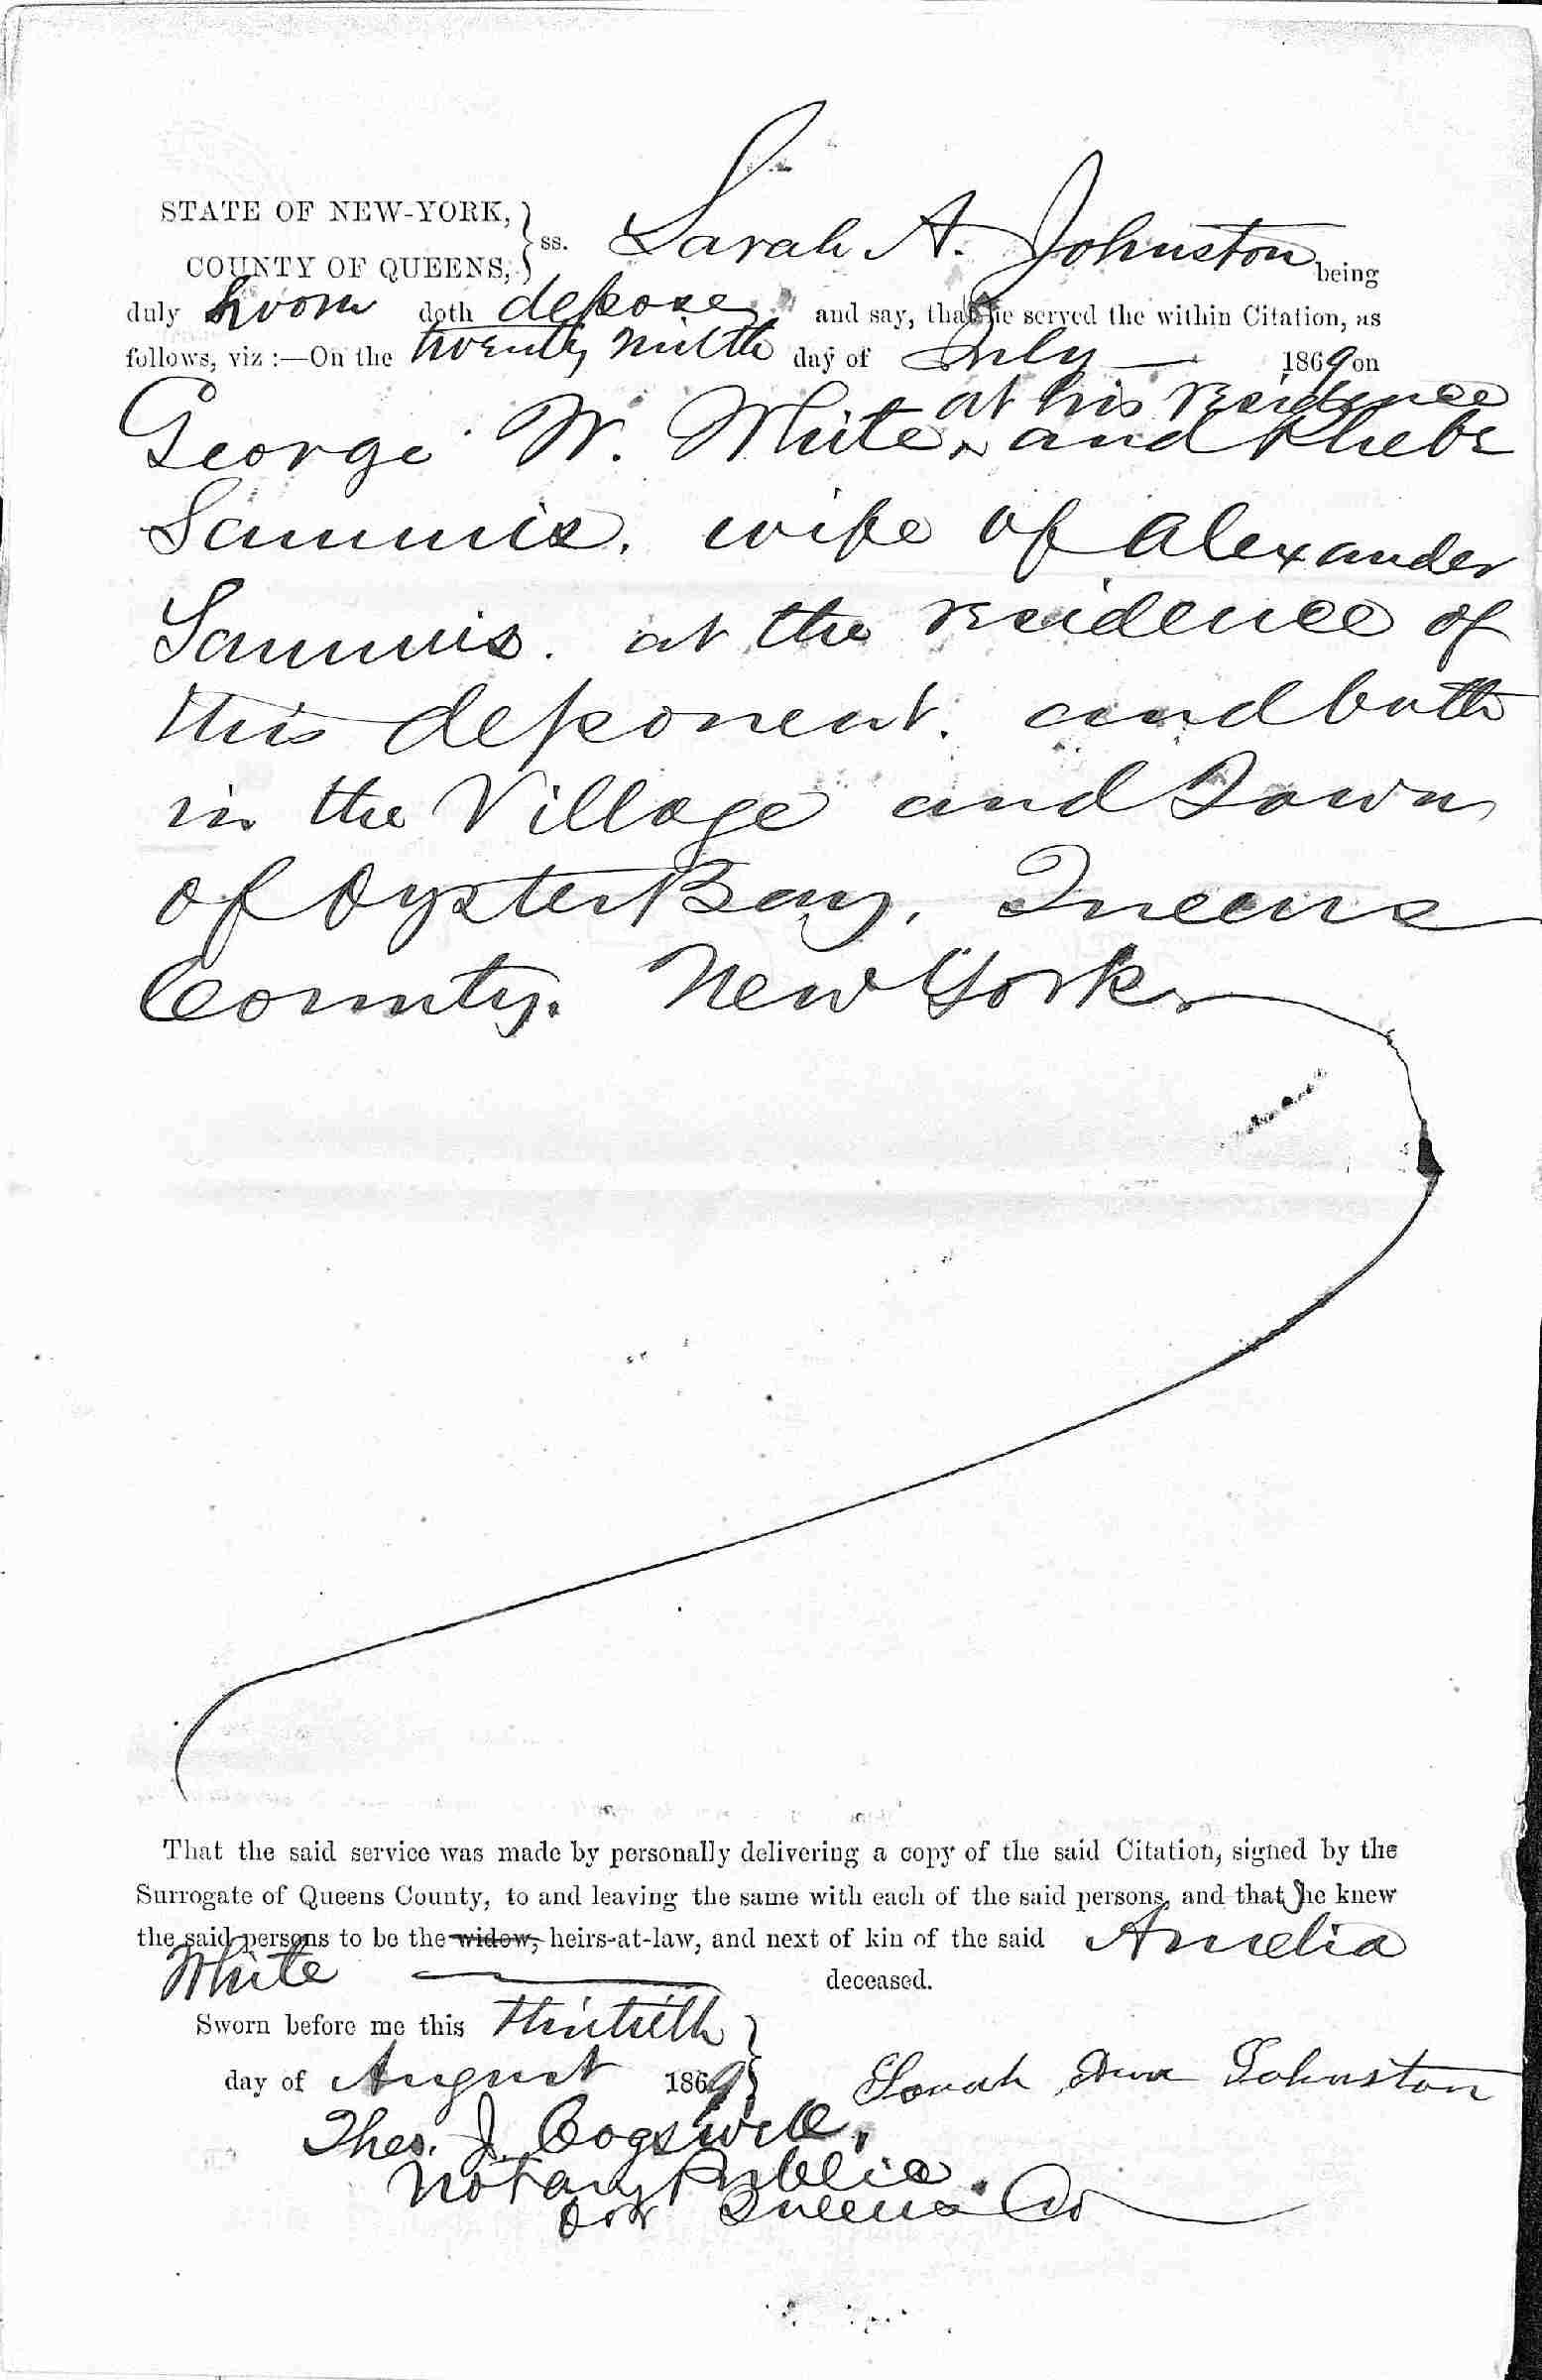 STATE OF NEW-YORK,
COUNTY OF QUEENS, } ss. Sarah A. Johnston being
duly sworn doth depose and say, that she served the within Citation, as
follows, viz :—On the twenty ninth day of July 1869 on
at his residence
George W. White, and Phebe
Sammis, wife of Alexander
Sammis. at the residence of
this deponent. and both
in the Village and Town
of Oyster Bay, Queens
County. New York
That the said service was made by personally delivering a copy of the said Citation, signed by the
Surrogate of Queens County, to and leaving the same with each of the said persons, and that she knew
the said persons to be the widow, heirs-at-law, and next of kin of the said Amelia
White deceased.
Sworn before me this thirtieth
day of August 1869 } Sarah Ann Johnston
Thos. J. Cogswell,
Notary Public.
for Queens Co